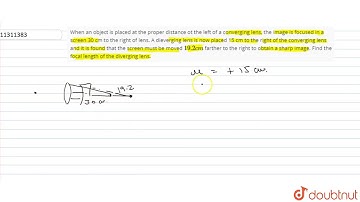 11311383
When an object is placed at the proper distance ot the left of a converging lens, the image is focused in a
screen 30 cm to the right of lens. A dieverging lens is now placed 15 cm to the right of the converging lens
and it is found that the screen must be moved 19.2cm farther to the right to obtain a sharp image. Find the
focal length of the diverging lens.
u = + 15 cm.
19.2
30 cm
doubtnut